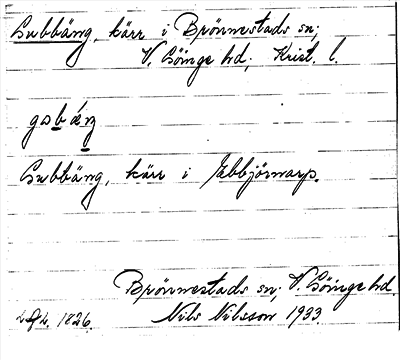 Gubbäng, kärr i Brönnestads sn;
V. Göinge hd; Krist. l.
gɷbæŋ
Gubbäng, kärr i Ebbjörnarp.
Brönnestads sn; V. Göinge hd.
1826. Nils Nilsson 1933.